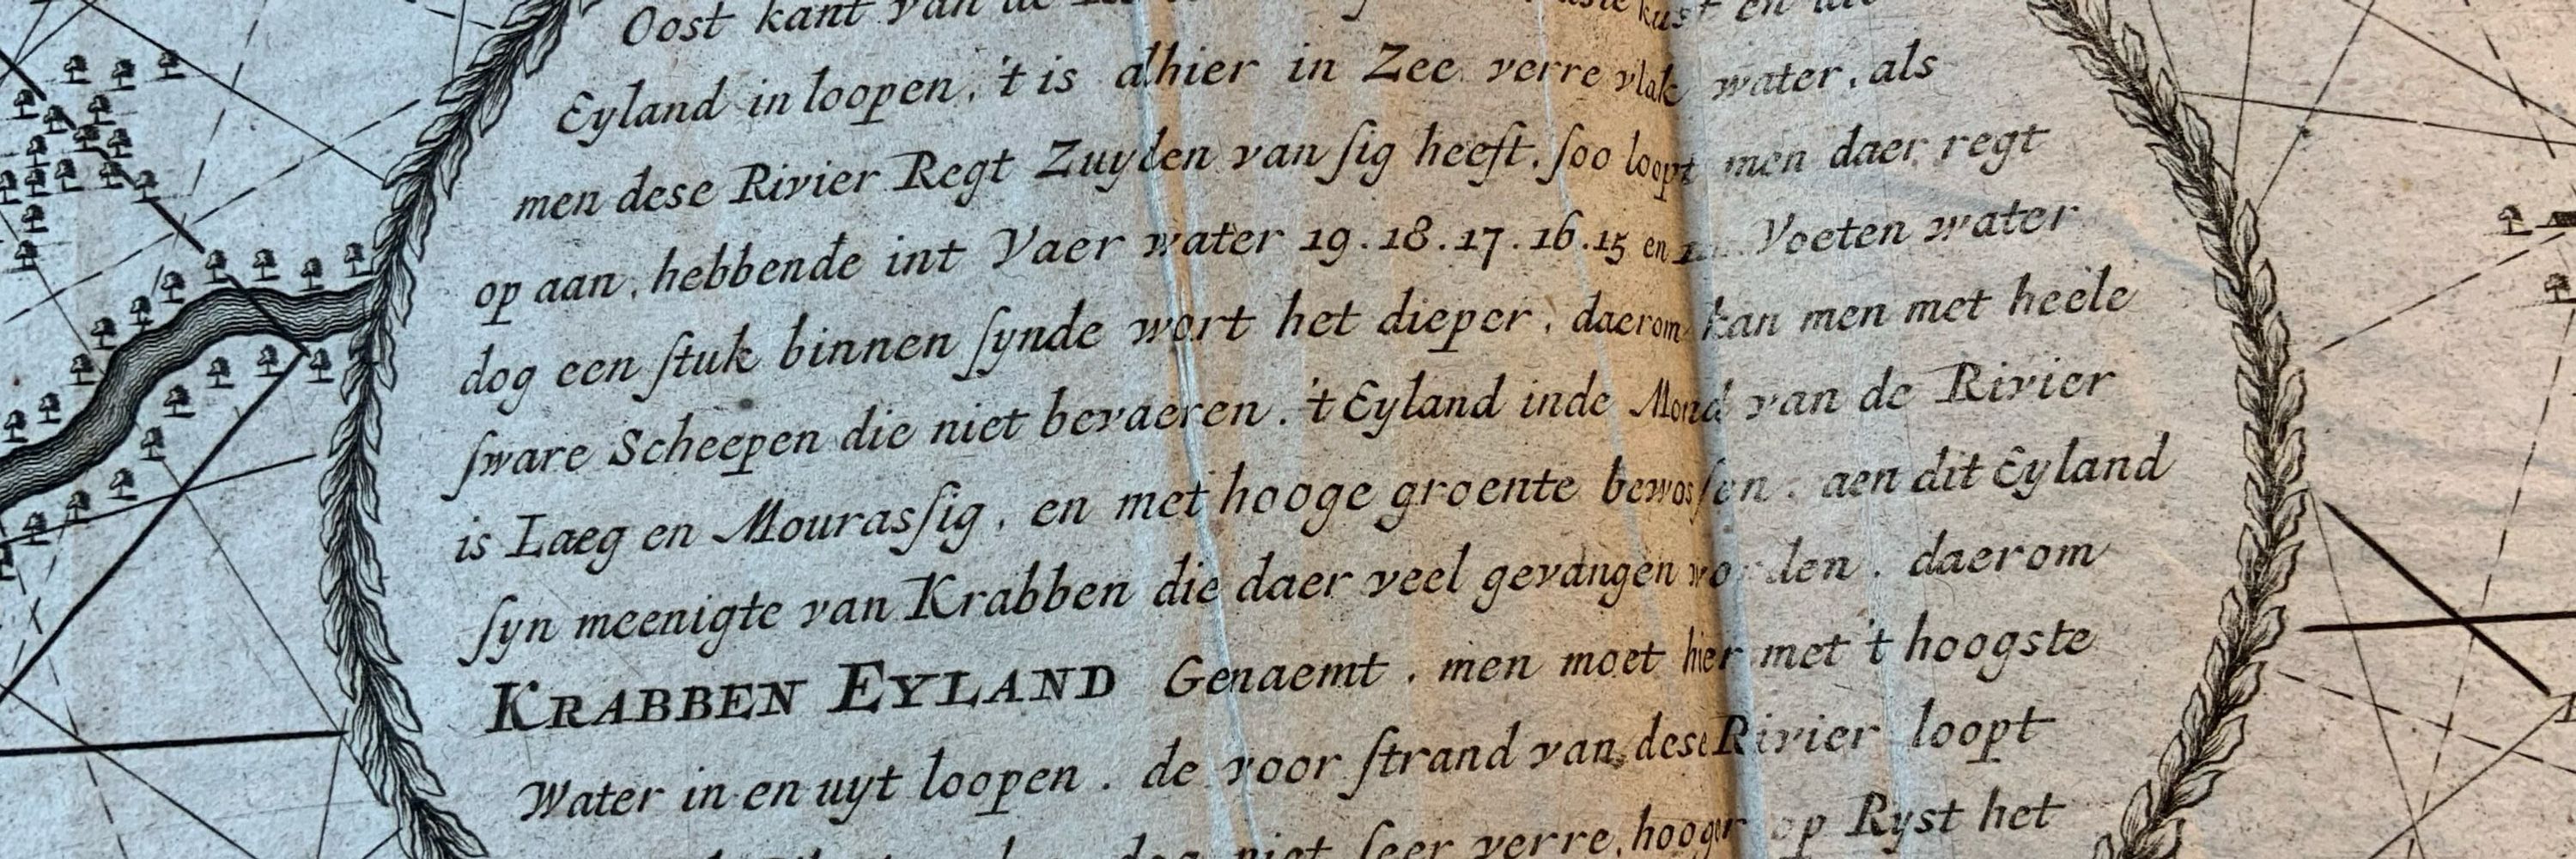 Oost kant van de kust en
Eyland in loopen, 't is alhier in Zee verre vlak water, als
men dese Rivier Regt Zuyden van ſig heeft, ſoo loopt men daer regt
op aan, hebbende int Vaer water 19.18.17.16.15 en Voeten water
dog een ſtuk binnen ſynde wort het dieper, daerom kan men met heele
ſware Scheepen die niet bevaeren. 't Eyland inde Mond van de Rivier
is Laeg en Mourasſig, en met hooge groente bewosſen. aen dit Eyland
ſyn meenigte van Krabben die daer veel gevangen worden. daerom
KRABBEN EYLAND Genaemt. men moet hier met 't hoogste
Water in en uyt loopen. de voor ſtrand van dese Rivier loopt
dog niet ſeer verre, hooger op Ryst het